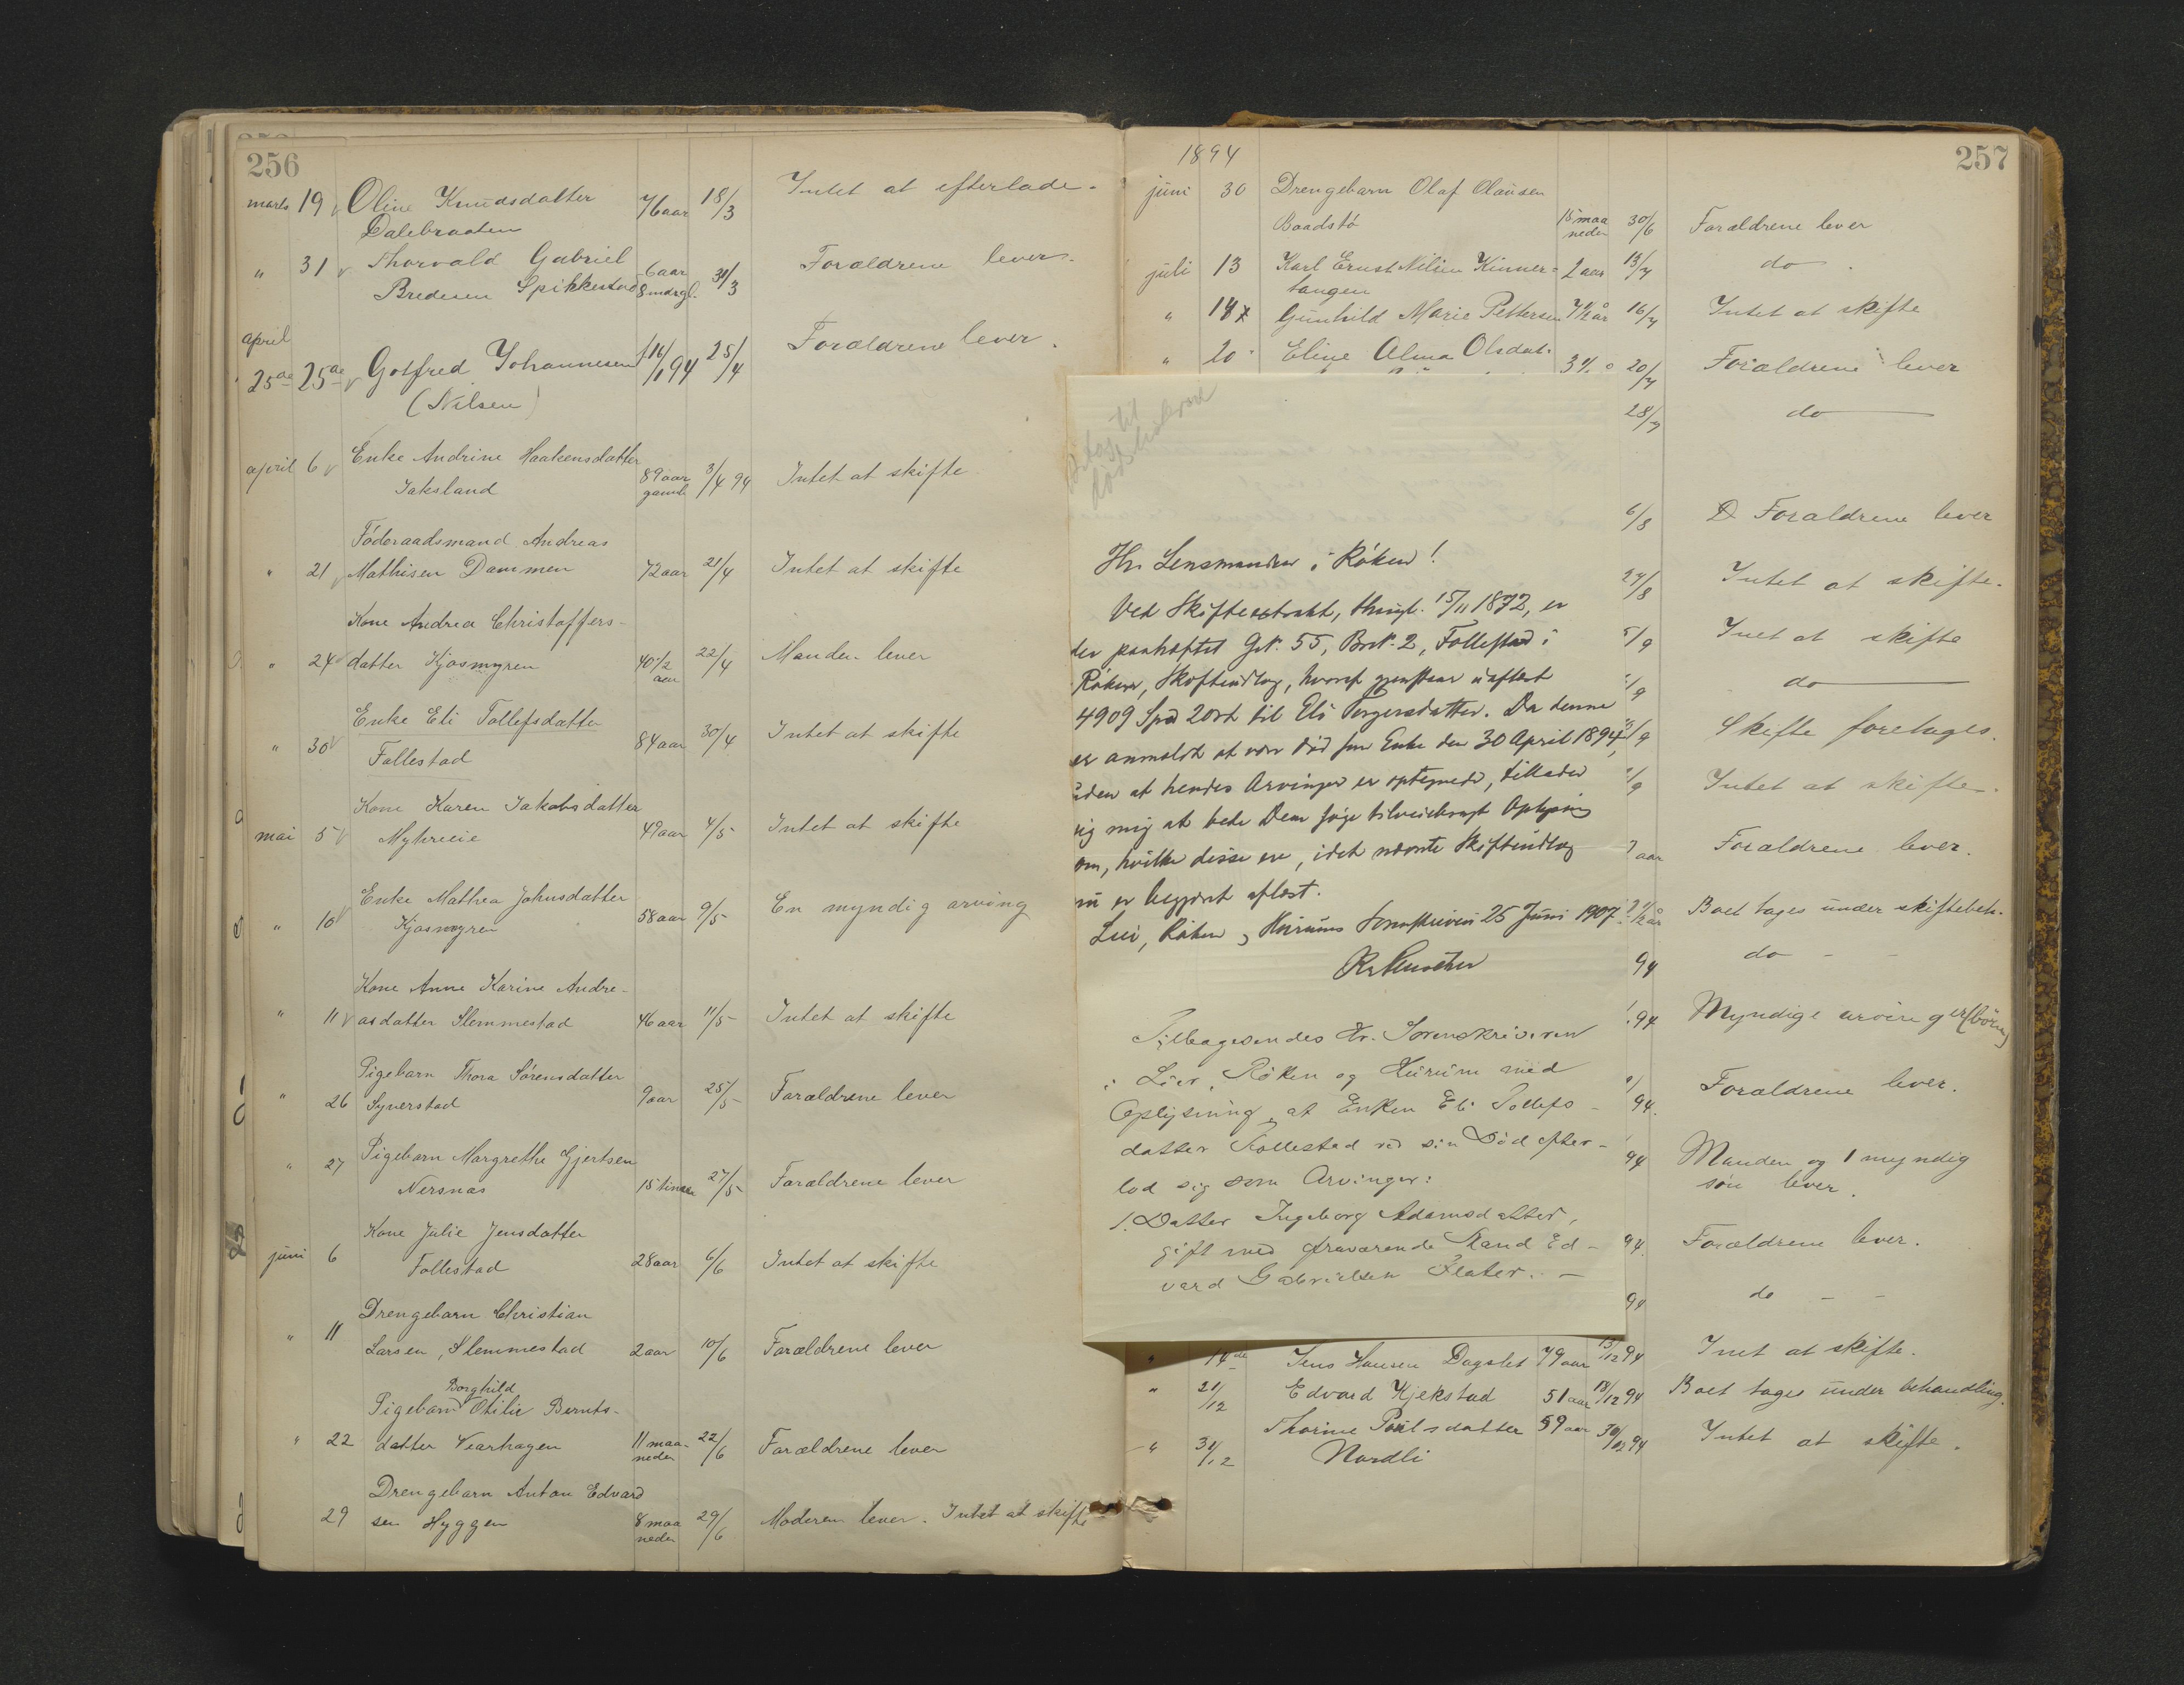 256
marts 19 Oline Knudsdatter 76 aar 18/3 Intet at efterlade.
Dalebraaten
" 31 Thorvald Gabriel 6 aar 31/3 Forældrene lever.
Bredesen Spikkestad 8 mdr gl.
april
25de 25de Gotfred Johannesen f 16/1 94 25/4 Forældrene lever.
(Nilsen)
april 6 Enke Andrine Haakensdatter 89 aar 3/4 94 Intet at skifte
Jaksland gaml.
Föderaadsmand Andreas
" 21 Mathisen Dammen 72 aar 21/4 Intet at skifte
Kone Andrea Christoffers-
" 24 datter Kjosmyren 40 1/2 aar 22/4 Manden lever
" 30 Enke Eli Tollefsdatter 84 aar 30/4 Intet at skifte
Follestad
Kone Karen Jakobsdatter
mai 5 Myhreeie 49 aar 4/5 Intet at skifte
" 10 Enke Mathea Johnsdatter 58 aar 9/5 En myndig arving
Kjosmyren
Kone Anne Karine Andre-
" 11 asdatter Slemmestad 46 aar 11/5 Intet at skifte
Pigebarn Thora Sörensdatter
" 26 Syverstad 9 aar 25/5 Forældrene lever
" 27 Pigebarn Margrethe Gjertsen
Nersnæs 15 timer 27/5 Forældrene lever
Kone Julie Jensdatter
juni 6 Follestad 28 aar 6/6 Intet at skifte
Drengebarn Christian
" 11 Larsen, Slemmestad 2 aar 10/6 Forældrene lever
Borghild
Pigebarn Otilie Bernts-
" 22 datter 11 maaneder 22/6 Forældrene lever
Drengebarn Anton Edvard
29 sen Hyggen 8 maaneder 29/6 Moderen lever. Intet at skifte
1894 257
juni 30 Drengebarn Olaf Olausen
Baadstö 15 maaneder 30/6 Forældrene lever
juli 13 Karl Ernst Nilsen Kinner- 2 aar 13/7 do.
tangen
" 18 Gunhild Marie Pettersen 7 1/2 år 16/7 Intet at skifte
" 20 Eline Alma Olsdat. 20/7 Forældrene lever
28/7 do
6/8 Forældrene lever
27/8 Intet at skifte.
5/9 Inet at skifte
/9 do
/9 Skifte foretages.
/9 Intet at skifte.
aar Forældrene lever.
1/2 år Boet tages under skiftebeh.
94 do - -
94 Myndige arvinger (börn)
94. Forældrene lever.
94 Manden og 1 myndig
sön lever.
94. Forældrene lever.
94 do - -
Bilag til
dødsfalsprot
Hr. Lensmanden i Röken!
Ved Skifteextrakt, thingl. 15/11 1872, er
der paaheftet Gr. 55, Br. 2, Follestad i
Röken, Skifteudlæg, hvoraf gjenstaar uaflæst
4909 Spd 2 ort til Eli Torgersdatter. Da denne
er anmeldt at være död som Enke den 30 April 1894,
uden at hendes Arvinger er optegnede, tillader
jeg mig at bede Dem söge tilveiebragt Oplysning
om, hvilke disse ere, idet nævnte Skifteudlæg
nu er begjært aflæst.
Lier, Röken & Hurums Sorenskriveri 25 Juni 1907.
Tilbagesendes Hr. Sorenskriveren
i Lier, Röken og Hurum med
Oplysning, at Enken Eli Tollefs-
datter Follestad ved sin Död efter-
lod sig som Arvinger:
1. Datter Ingeborg Adamsdatter,
gift med fraværende Mand Ed-
vard Gabrielsen Slater. -
" 14de Jens Hansen Dagslet 79 aar 13/12 94 Inet at skifte.
" 21/12 Edvard Kjekstad 51 aar 18/12 94 Boet tages under behandling.
" 31/12 Thorine Poulsdatter 59 aar 30/12 94 Intet at skifte.
Nordli